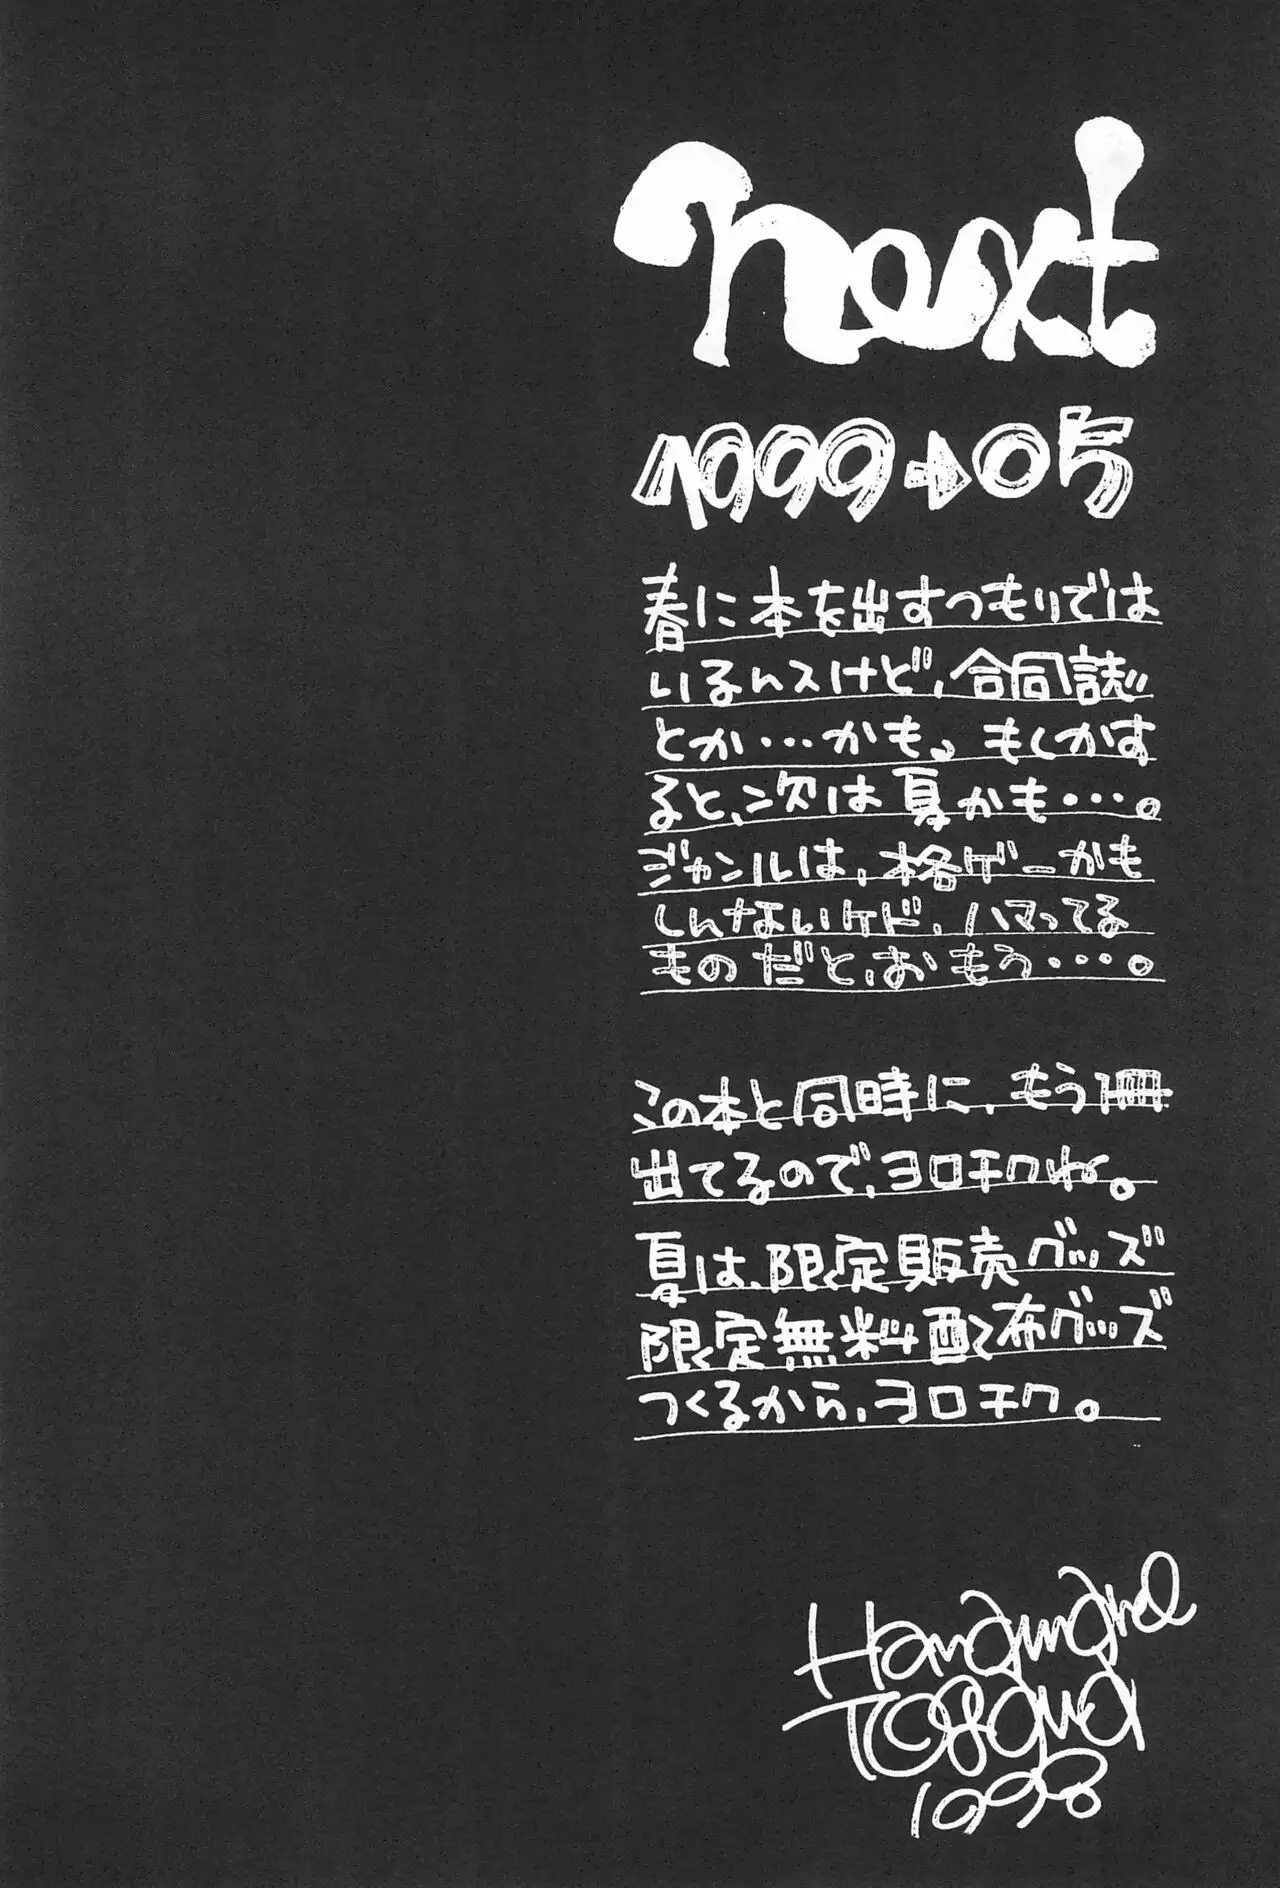 next
1999→05
春に本を出すつもりでは
いるんスけど、合同誌
とか・・・かも。もしかす
ると、次は夏かも・・・。
ジャンルは、格ゲーかも
しんないケド、ハマってる
ものだと、おもう・・・。
この本と同時に、もう1冊
出てるので、ヨロチクね。
夏は、限定販売グッズ
限定無料配布グッズ
つくるから、ヨロチク。
1998